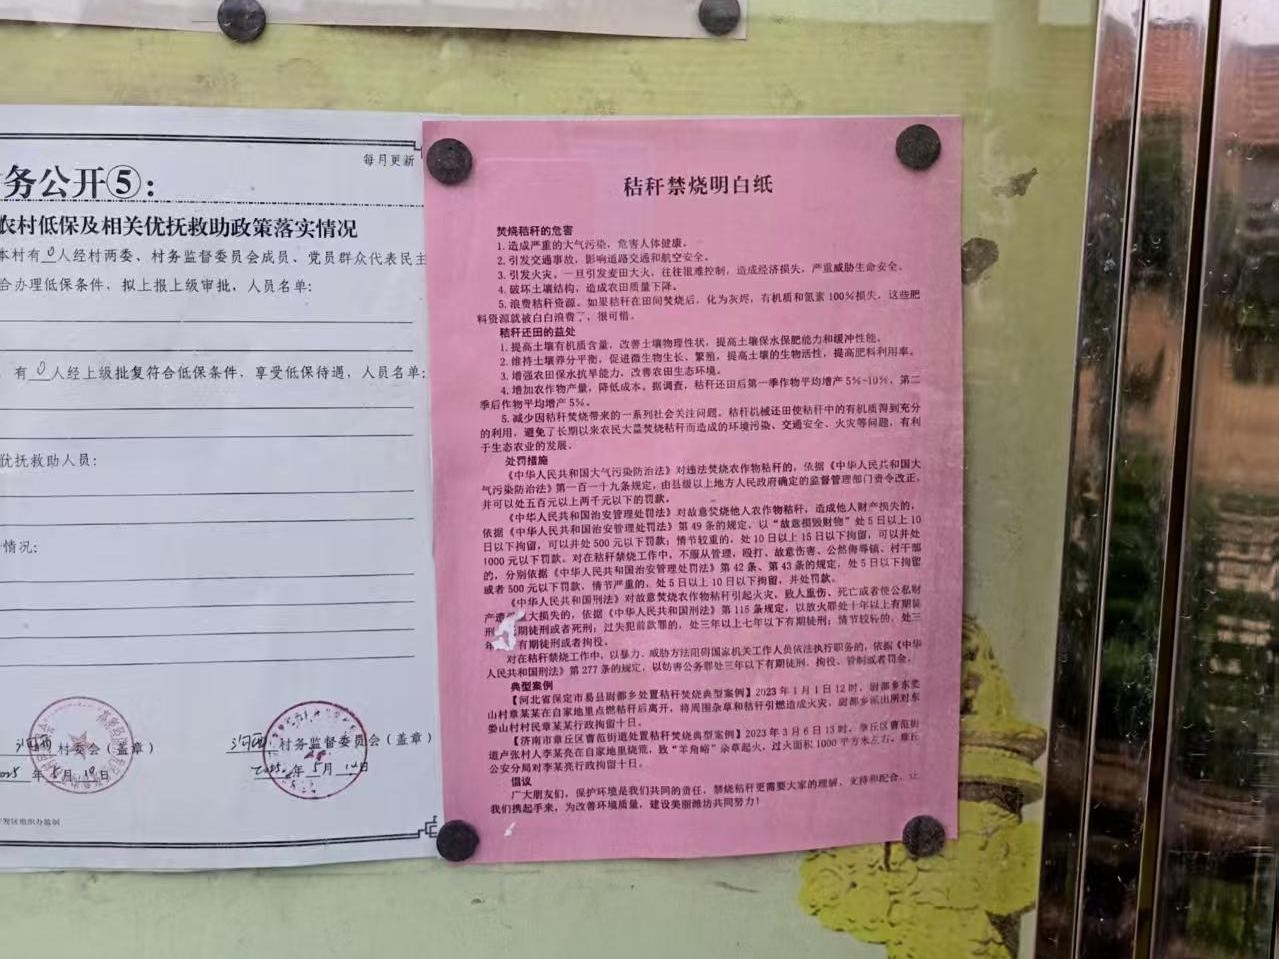 每月更新
务公开⑤：
农村低保及相关优抚救助政策落实情况
本村有0人经村两委、村务监督委员会成员、党员群众代表民主
合办理低保条件，拟上报上级审批，人员名单：
有0人经上级批复符合低保条件，享受低保待遇，人员名单：
优抚救助人员：
情况：
村委会（盖章）
村务监督委员会（盖章）
年5月10日
年5月10日
发区组织办监制
秸秆禁烧明白纸
焚烧秸秆的危害
1. 造成严重的大气污染，危害人体健康。
2. 引发交通事故，影响道路交通和航空安全。
3. 引发火灾。一旦引发麦田大火，往往很难控制，造成经济损失，严重威胁生命安全。
4. 破坏土壤结构，造成农田质量下降。
5. 浪费秸秆资源。如果秸秆在田间焚烧后，化为灰烬，有机质和氮素100%损失，这些肥
料资源就被白白浪费了，很可惜。
秸秆还田的益处
1. 提高土壤有机质含量，改善土壤物理性状，提高土壤保水保肥能力和缓冲性能。
2. 维持土壤养分平衡，促进微生物生长、繁殖，提高土壤的生物活性，提高肥料利用率。
3. 增强农田保水抗旱能力，改善农田生态环境。
4. 增加农作物产量，降低成本。据调查，秸秆还田后第一季作物平均增产5%-10%，第二
季后作物平均增产5%。
5. 减少因秸秆焚烧带来的一系列社会关注问题。秸秆机械还田使秸秆中的有机质得到充分
的利用，避免了长期以来农民大量焚烧秸秆而造成的环境污染、交通安全、火灾等问题，有利
于生态农业的发展。
处罚措施
《中华人民共和国大气污染防治法》对违法焚烧农作物秸秆的，依据《中华人民共和国大
气污染防治法》第一百一十九条规定，由县级以上地方人民政府确定的监督管理部门责令改正，
并可以处五百元以上两千元以下的罚款。
《中华人民共和国治安管理处罚法》对故意焚烧他人农作物秸秆，造成他人财产损失的，
依据《中华人民共和国治安管理处罚法》第49条的规定，以“故意损毁财物”处5日以上10
日以下拘留，可以并处500元以下罚款；情节较重的，处10日以上15日以下拘留，可以并处
1000元以下罚款。对在秸秆禁烧工作中，不服从管理，殴打、故意伤害、公然侮辱镇、村干部
的，分别依据《中华人民共和国治安管理处罚法》第42条、第43条的规定，处5日以下拘留
或者500元以下罚款，情节严重的，处5日以上10日以下拘留，并处罚款。
《中华人民共和国刑法》对故意焚烧农作物秸秆引起火灾，致人重伤、死亡或者使公私财
产遭 大损失的，依据《中华人民共和国刑法》第115条规定，以放火罪处十年以上有期徒
刑 期徒刑或者死刑；过失犯前款罪的，处三年以上七年以下有期徒刑；情节较轻的，处三
年 有期徒刑或者拘役。
对在秸秆禁烧工作中，以暴力、威胁方法阻碍国家机关工作人员依法执行职务的，依据《中华
人民共和国刑法》第277条的规定，以妨害公务罪处三年以下有期徒刑、拘役、管制或者罚金。
典型案例
【河北省保定市易县尉都乡处置秸秆焚烧典型案例】2023年1月1日12时，尉都乡东娄
山村章某某在自家地里点燃秸秆后离开，将周围杂草和秸秆引燃造成火灾，尉都乡派出所对东
娄山村村民章某某行政拘留十日。
【济南市章丘区曹范街道处置秸秆焚烧典型案例】2023年3月6日13时，章丘区曹范街
道卢张村人李某亮在自家地里烧荒，致“羊角峪”杂草起火，过火面积1000平方米左右，章丘
公安分局对李某亮行政拘留十日。
倡议
广大朋友们，保护环境是我们共同的责任，禁烧秸秆更需要大家的理解、支持和配合，让
我们携起手来，为改善环境质量，建设美丽潍坊共同努力！